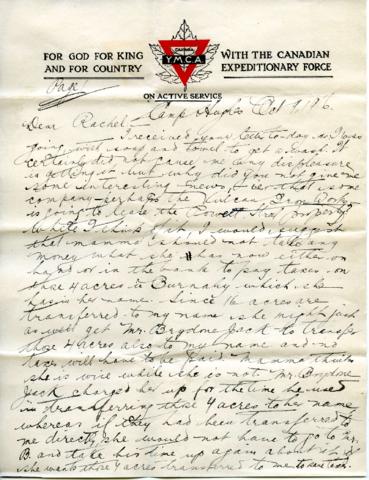 FOR GOD FOR KING
AND FOR COUNTRY
CANADA
Y.M.C.A.
WITH THE CANADIAN
EXPEDITIONARY FORCE
ON ACTIVE SERVICE
Camp Hughes Oct 9, 1916.
Dear Rachel:
I received your letter to-day as I was
going with soap and towel to get a wash. It
certainly did not cause me any displeasure
in getting it but why did you not give me
some interesting news, I see that some
company perhaps the Vulcan Iron Works
is going to lease the Powell Street property
While I think of it, I would suggest
that mamma should not take any
money what she has now either on
hand or in the bank to pay taxes on
those 4 acres in Burnaby which she
has in her name. Since 16 acres are
transferred to my name she might just
as well get Mr. Brydone Jack to transfer
those 4 acres also to my name and no
taxes will have to be paid. Mamma thinks
she is wise while she is not. Mr. Brydone
Jack charged her up for the time he used
in transferring those 4 acres to her name
whereas if they had been transferred to
me directly she would not have to go to Mr.
B. and take his time up again about it if
she wants those 4 acres transferred to me to save taxes.